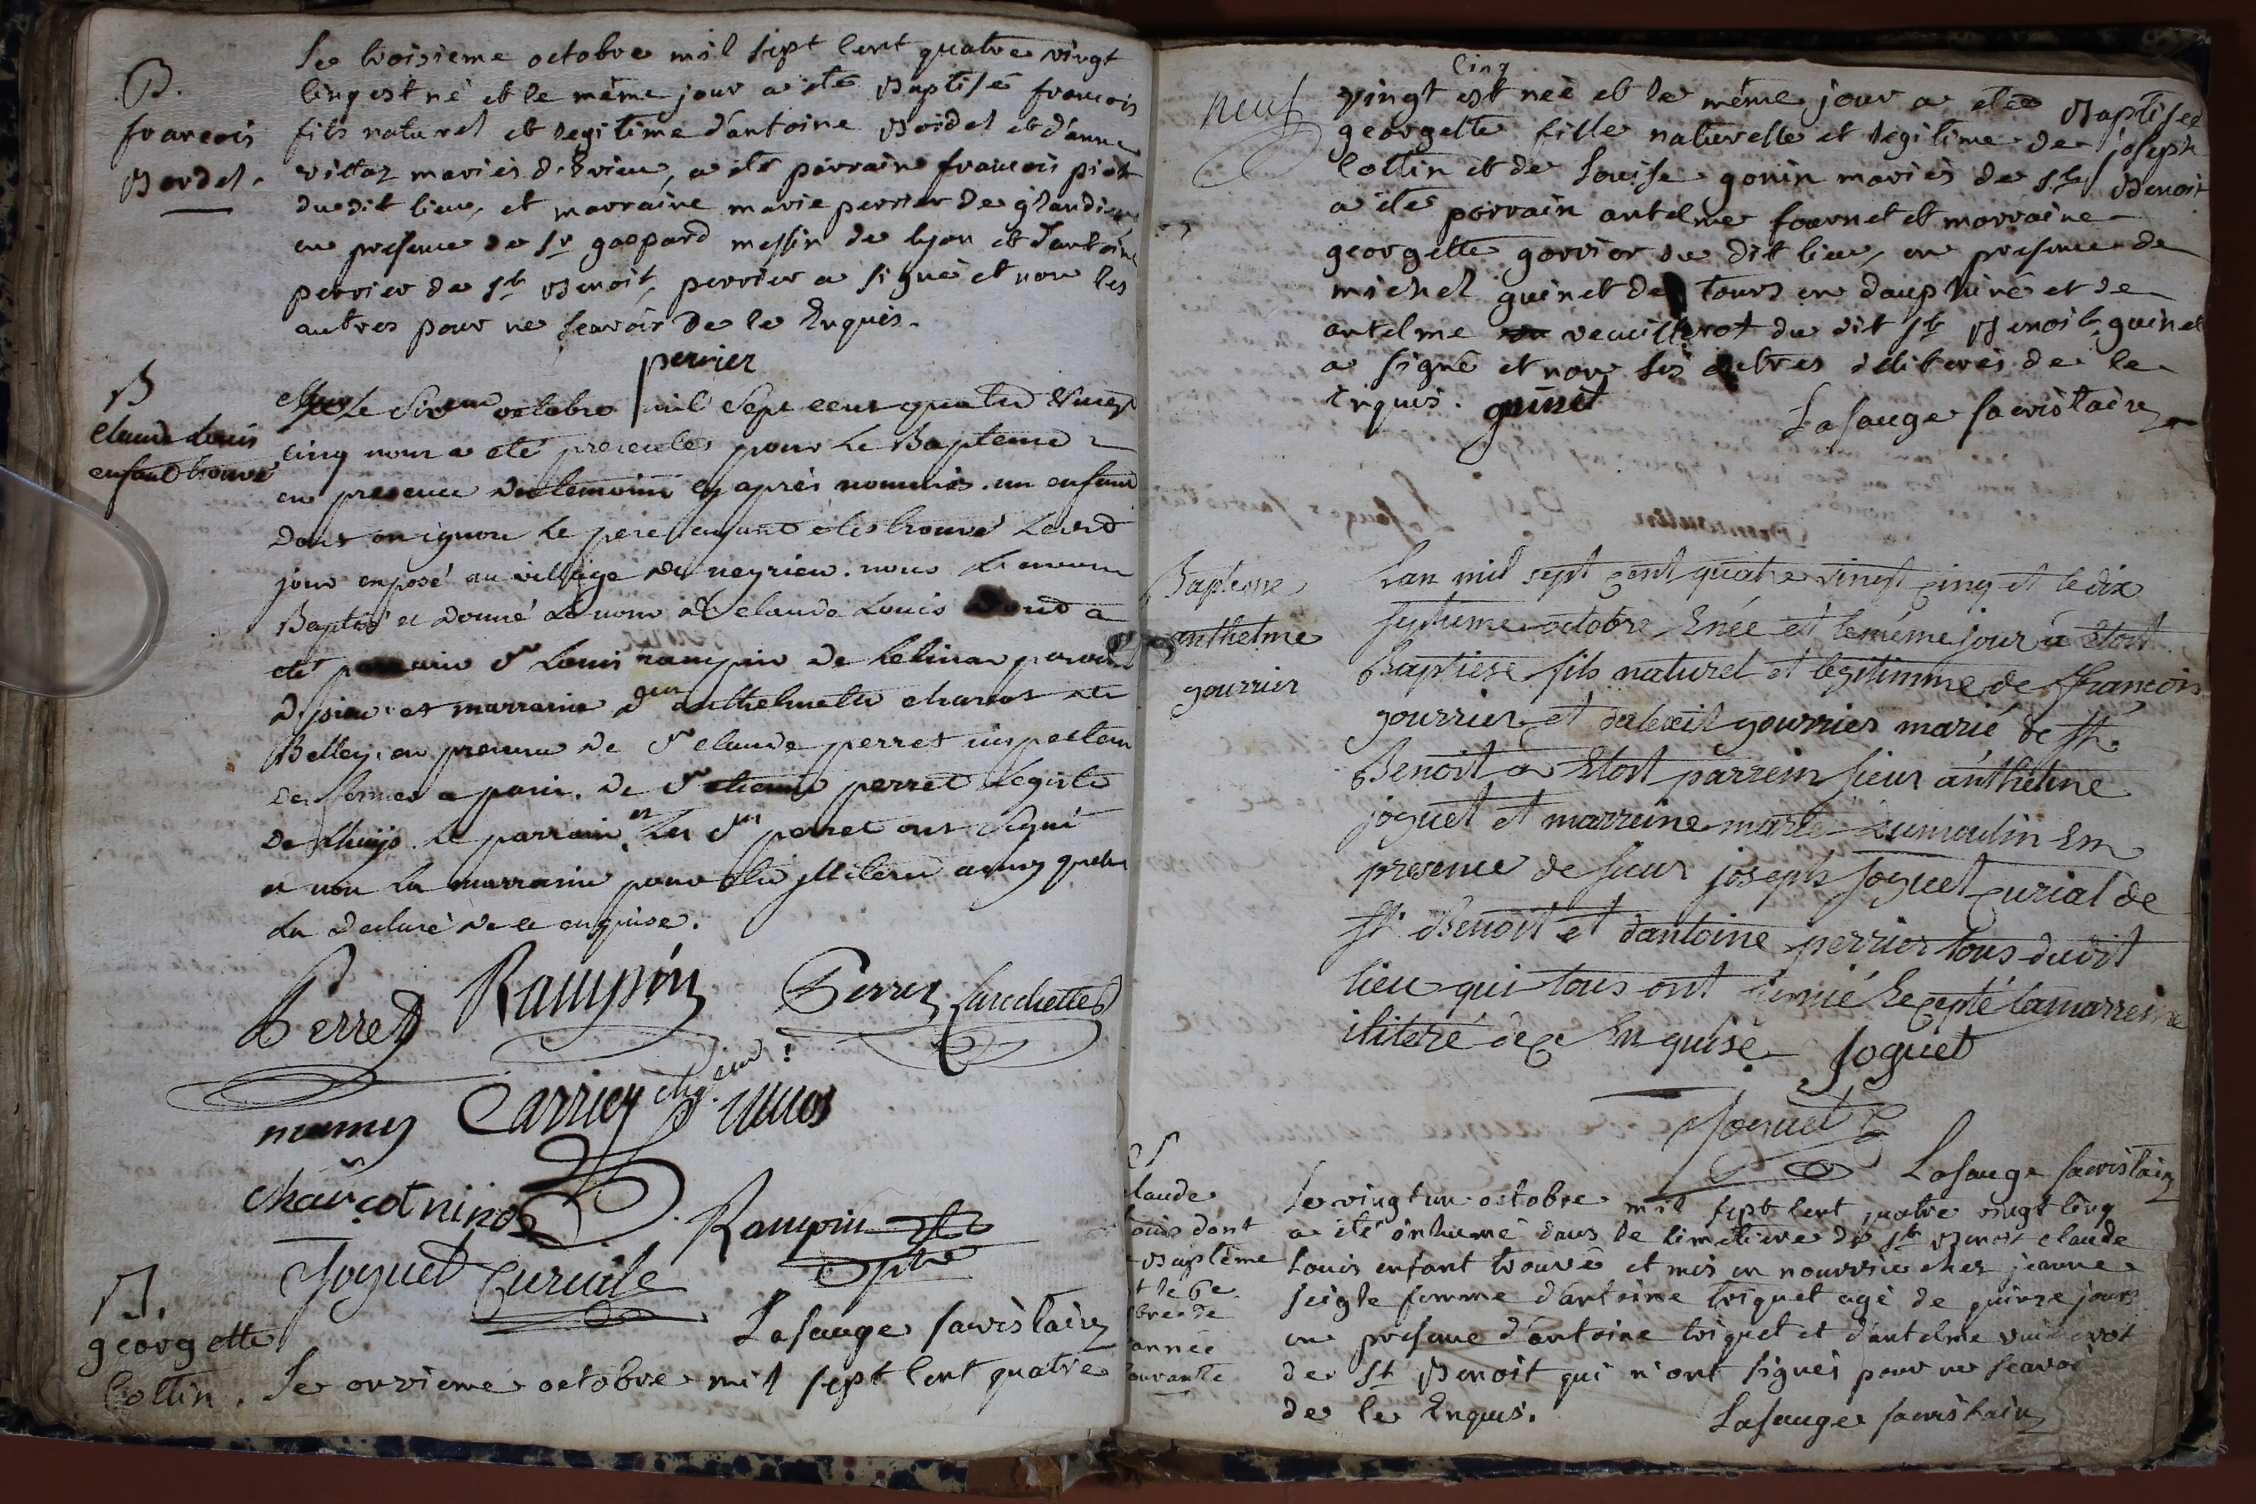 B.
francois
Bordel.
Le troisieme octobre mil sept cent quatre vingt
cinq est né et le même jour a ete Baptisé francois
fils naturel et legitime d'antoine Boidel et d'anne
villaz mariés d'Evieu, a ete parrain francois piot
du dit lieu, et marraine marie perrier de glandieu
en presence de sr gaspard messin de lyon et d'antoine
perrier de st Benoit, perrier a signé et non les
autres pour ne scavoir de ce Enquis.
perrier
B
Claude Louis
enfant trouvé
Le six octobre mil sept cent quatre vingt
cinq nous a eté presenté pour le Bapteme
en presence des temoins cy après nommés un enfant
dont on ignore le pere ayant eté trouvé
jour exposé au village de neyrieu. nous l'avons
Baptisé et donné le nom de claude Louis dont a
eté parrain sr Louis rampin de
et marraine anthelmette charcot de
Belley, en presence de sr claude perret inspecteur
des fermes a paris. de sr etienne perret legiste
de Lhuijs. le parrain et les srs perret ont signé
et non la marraine pour etre
la declaré de ce enquise.
Perret Rampin Perret
Carrier
charcot ninos Rampin
Joguet Curial
Lasauge sacristain
B.
georgette
Cottin.
Le onzieme octobre mil sept cent quatre
neuf
cinq
vingt est neè et le même jour a eteé Baptiseé
georgette fille naturelle et legitime de joseph
Cottin et de Louise gonin mariés de st Benoit
a ete parrain antelme fournet et marraine
georgette gorrier du dit lieu, en presence de
michel guinet de tours en dauphiné et de
antelme veuillerot du dit st Benoit, guinet
a signé et non les autres illiterés de ce
Enquis. guinet
Lasauge sacristain
Bapteme
anthelme
gourrier
Lan mil sept cent quatre vingt cinq et le dix
septieme octobre Enée et le même jour a Etort
Baptiese fils naturel et legitimme de ffrancois
gourrier et gourrier marié de st
Benoit a Etort parrein sieur anthelme
joguet et marreine marie Dumoulin En
presence de sieur joseph Joguet curial de
st Benoit et dantoine perrier tous dudit
lieu qui tous ont signié Excepté la marreine
iliteré de ce Enquise. Joguet
Joguet
Lasauge sacristain
S
laude
ouis dont
Baptême
t le 6e
bre de
année
ourante
Le vingt un octobre mil sept cent quatre vingt cinq
a eté inhumé dans le cimetiere de st Benoit claude
Louis enfant trouvé et mis en nourrice chez jeanne
seigle femme d'antoine triquet agé de quinze jours
en presence d'antoine triquet et d'antelme
de st Benoit qui n'ont signés pour ne scavoir
de ce Enquis.
Lasauge sacristain